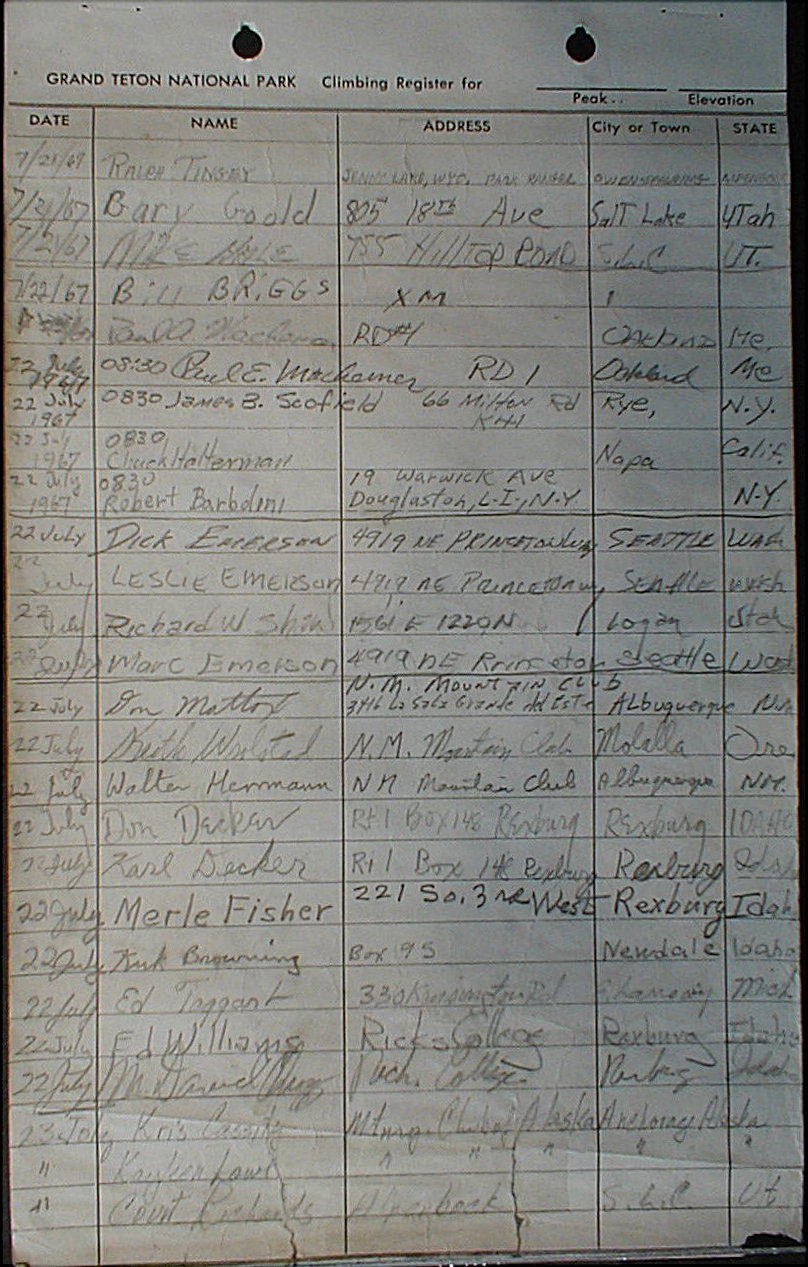 GRAND TETON NATIONAL PARK Climbing Register for
Peak.. Elevation
DATE NAME ADDRESS City or Town STATE
7/21/67 RALPH TINGEY JENNY LAKE, WYO. PARK RANGER
7/21/67 Gary Goold 805 18th Ave Salt Lake Utah
7/21/67 MIKE 755 HILLTOP ROAD S.L.C. UT.
7/22/67 Bill BRiGGs XM 1
RD#1 Oakland Me.
22 July 1967 08:30 Paul E. Machemer RD 1 Oakland Me
22 July 1967 0830 James B. Scofield 66 Milton Rd Rye, N.Y.
22 July 1967 0830 Chuck Halterman Napa Calif.
22 July 1967 0830 Robert Barbolini 19 Warwick Ave Douglaston, L.I., N.Y. N.Y.
22 July DICK EMERSON 4919 NE PRINCETON Way SEATTLE WASH
22 July LESLIE EMERSON 4919 NE PRINCETON Way SEATTLE WASH
22 July Richard W 1561 E 1220 N Logan Utah
22 July Marc Emerson 4919 NE Princeton Seattle Wash
N.M. MOUNTAIN CLUB
22 July Don Mattox 3416 La Sala Grande Albuquerque N.M.
22 July N.M. Mountain Club Molalla Ore
22 July Walter Herrmann N M Mountain Club Albuquerque NM.
22 July Don Decker Rt 1 Box 148 Rexburg Rexburg IDAHO
22 July Karl Decker Rt 1 Box 148 Rexburg Rexburg Idah
22 July Merle Fisher 221 So. 3rd West Rexburg Idah
22 July Kirk Browning Box 95 Newdale Idaho
22 July Ed Taggart 330 Mich
22 July Ed Williams Ricks College Rexburg Idaho
22 July M. College Rexburg Idah
23 July Kris Mtnrg. Club of Alaska Anchorage Alaska
" " " " " "
" Court Richards S.L.C. Ut